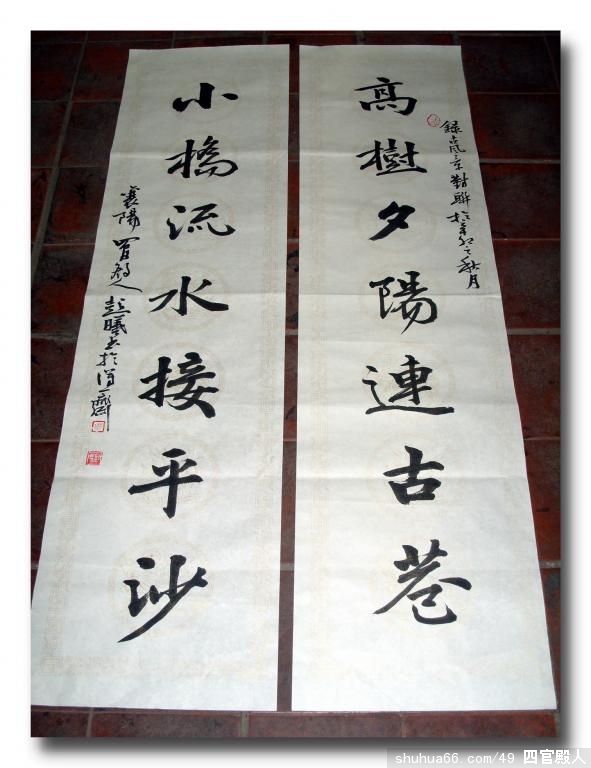 錄古風景對聯於辛卯之秋月
高樹夕陽連古巷
小橋流水接平沙
襄陽四官殿人彭曦書於一齋
shuhua66.com/49 四官殿人